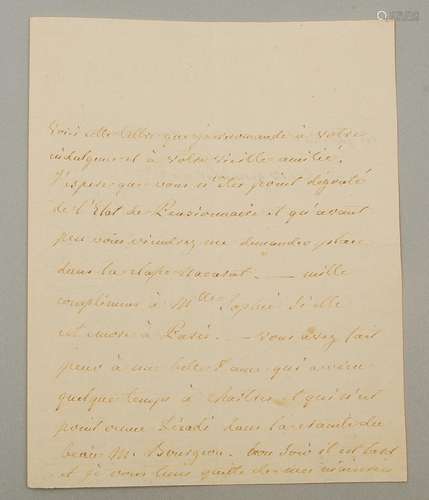 Voici cette lettre que je recommande à votre
indulgence et à votre vieille amitié.
J'espère que vous n'êtes point dégouté
de l'Etat de Pensionnaire et qu'avant
peu vous viendrez me demander place
dans la classe vacante. — mille
complimens à Mlle Sophie si elle
est encore à Paris. — vous avez fait
peur à une belle Dame qui a vécu
quelque temps à Chartres et qui n'est
point venue dans la crainte du
beau M. Bourgeon. bon soir il est tard
et je vous tiens quitte de mes